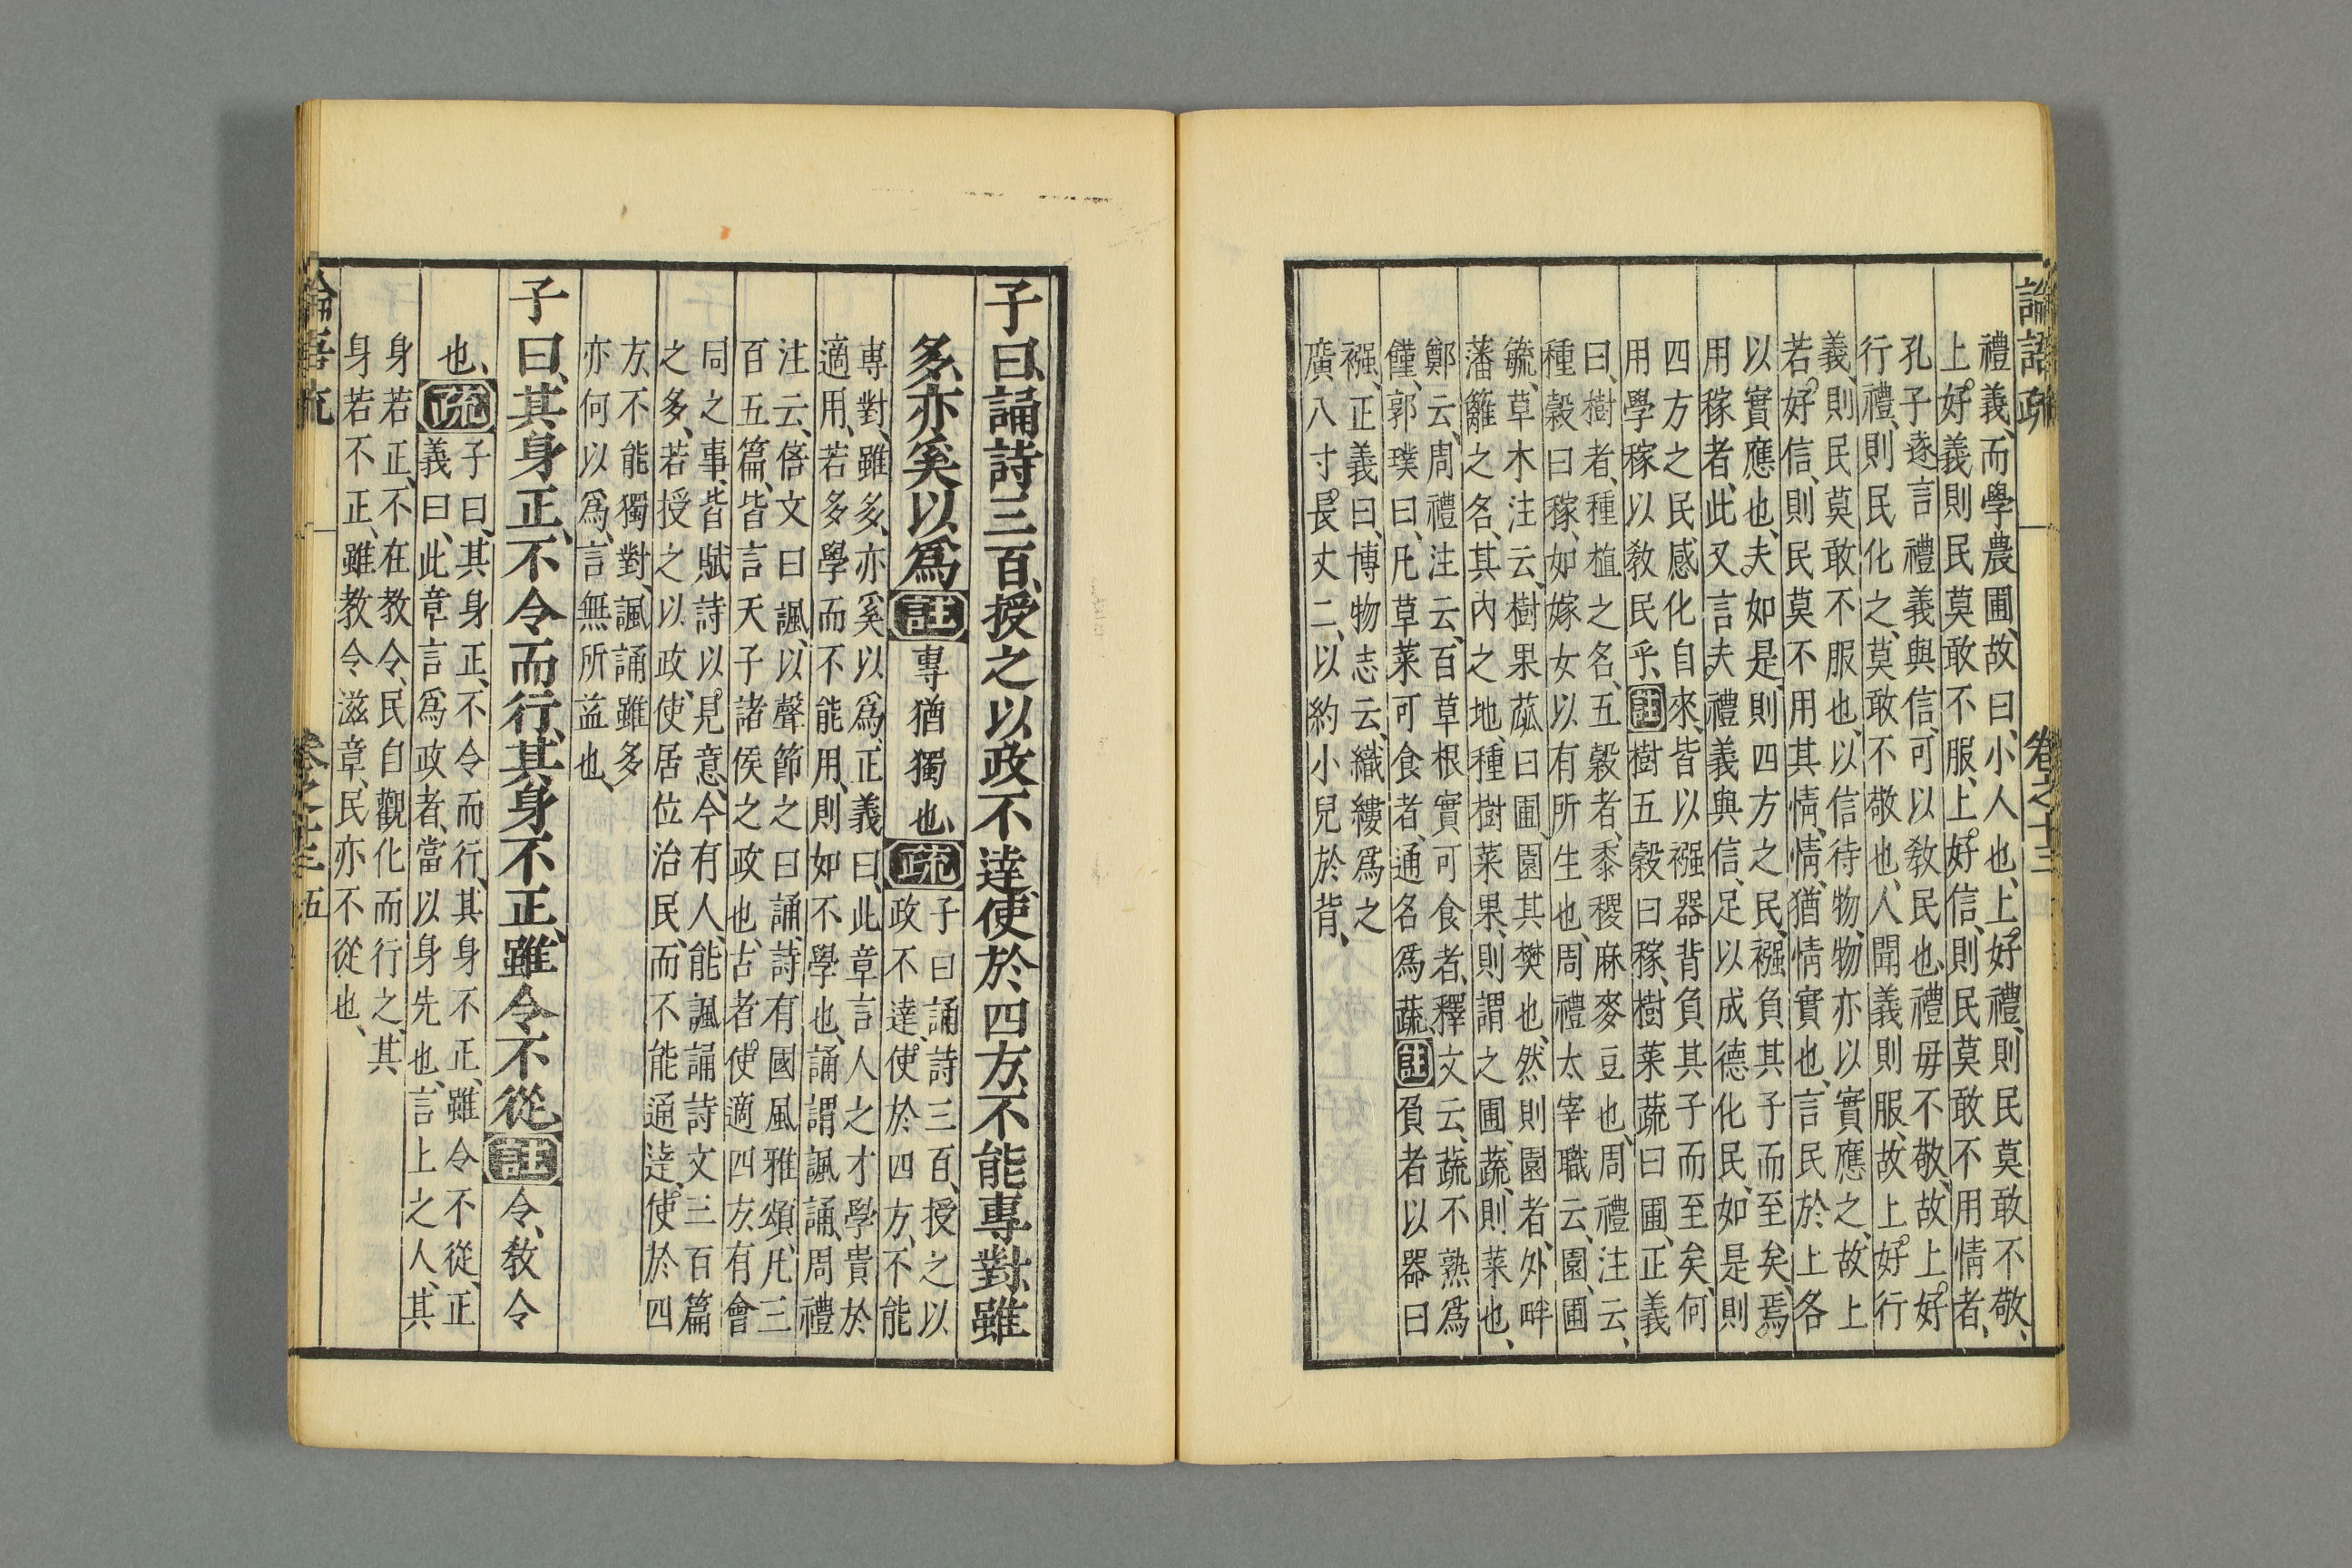 論語疏 卷之十三
禮義、而學農圃、故曰、小人也、上好禮、則民莫敢不敬、
上好義則民莫敢不服、上好信、則民莫敢不用情者、
孔子遂言禮義與信、可以教民也、禮毋不敬、故上好
行禮、則民化之、莫敢不敬也、人聞義則服、故上好行
義、則民莫敢不服也、以信待物、物亦以實應之、故上
若好信、則民莫不用其情、情猶情實也、言民於上各
以實應也、夫如是、則四方之民、襁負其子而至矣、焉
用稼者、此又言夫禮義與信、足以成德化民、如是則
四方之民、感化自來、皆以襁器背負其子而至矣、何
用學稼以教民乎、註樹五穀曰稼、樹菜蔬曰圃、正義
曰、樹者、種植之名、五穀者、黍稷麻麥豆也、周禮注云、
種穀曰稼、如嫁女以有所生也、周禮太宰職云、園圃
毓、草木注云、樹果蓏曰圃、園其樊也、然則園者、外畔
藩籬之名、其內之地、種樹菜果、則謂之圃、蔬、則菜也、
鄭云、周禮注云、百草根實可食者、釋文云、蔬不熟爲
饉、郭璞曰、凡草菜可食者、通名爲蔬、註負者以器曰
襁、正義曰、博物志云、織縷爲之
廣八寸、長丈二、以約小兒於背、
子曰、誦詩三百、授之以政不達、使於四方、不能專對、雖
多、亦奚以爲註專猶獨也、疏子曰誦、詩三百、授之以
政不達、使於四方、不能
專對、雖多、亦奚以爲、正義曰、此章言人之才學貴於
適用、若多學而不能用、則如不學也、誦謂諷誦、周禮
注云、倍文曰諷、以聲節之曰誦、詩有國風雅頌、凡三
百五篇、皆言天子諸侯之政也、古者使適四方、有會
同之事、皆賦詩以見意、今有人、能諷誦詩文三百篇
之多、若授之以政、使居位治民、而不能通達、使於四
方、不能獨對、諷誦雖多
亦何以爲、言無所益也、
子曰、其身正、不令而行、其身不正、雖令不從、註令、教令
也、疏子曰、其身正、不令而行、其身不正、雖令不從、正
義曰、此章言爲政者、當以身先也、言上之人、其
身若正、不在教令、民自觀化而行之、其
身若不正、雖教令滋章、民亦不從也、
論語疏 卷之十三 五